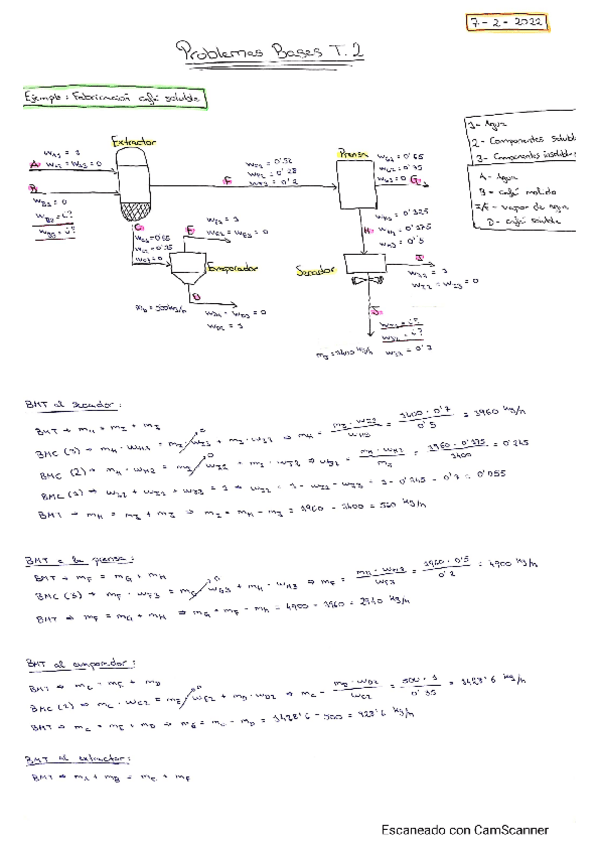 7-2-2022
Problemas Bases T.2
Ejemplo: Fabricación café soluble
Extractor
Prensa
Evaporador
Secador
1- Agua
2- Componentes solubl
3- Componentes insolubles
A- Agua
B- café molido
vapor de agua
D- café soluble
A
wA1 = 1
wA2 = wA3 = 0
B
wB1 = 0
wB2 = ¿?
wB3 = ¿?
F
wF1 = 0'52
wF2 = 0'28
wF3 = 0'2
wG1 = 0'65
wG2 = 0'35
wG3 = 0
C
wC1 = 0'65
wC2 = 0'35
wC3 = 0
E
wE1 = 1
wE2 = wE3 = 0
D
mD = 500 kg/h
wD1 = wD3 = 0
wD2 = 1
H
wH1 = 0'325
wH2 = 0'175
wH3 = 0'5
I
wI1 = 1
wI2 = wI3 = 0
J
wJ1 = ¿?
wJ2 = ¿?
mJ = 1400 kg/h wJ3 = 0'7
BMT al secador:
BMT → mH = mI + mJ
BMC (3) → mH · wH3 = mI · wI3 + mJ · wJ3 → mH = mJ · wJ3 / wH3 = 1400 · 0'7 / 0'5 = 1960 kg/h
BMC (2) → mH · wH2 = mI · wI2 + mJ · wJ2 → wJ2 = mH · wH2 / mJ = 1960 · 0'175 / 1400 = 0'245
BMC (1) → wJ1 + wJ2 + wJ3 = 1 → wJ1 = 1 - wJ2 - wJ3 = 1 - 0'245 - 0'7 = 0'055
BMT → mH = mI + mJ → mI = mH - mJ = 1960 - 1400 = 560 kg/h
BMT a la prensa:
BMT → mF = mG + mH
BMC (3) → mF · wF3 = mG · wG3 + mH · wH3 → mF = mH · wH3 / wF3 = 1960 · 0'5 / 0'2 = 4900 kg/h
BMT → mF = mG + mH → mG = mF - mH = 4900 - 1960 = 2940 kg/h
BMT al evaporador:
BMT → mC = mE + mD
BMC (2) → mC · wC2 = mE · wE2 + mD · wD2 → mC = mD · wD2 / wC2 = 500 · 1 / 0'35 = 1428'6 kg/h
BMT → mC = mE + mD → mE = mC - mD = 1428'6 - 500 = 928'6 kg/h
BMT al extractor:
BMT → mA + mB = mC + mF
Escaneado con CamScanner